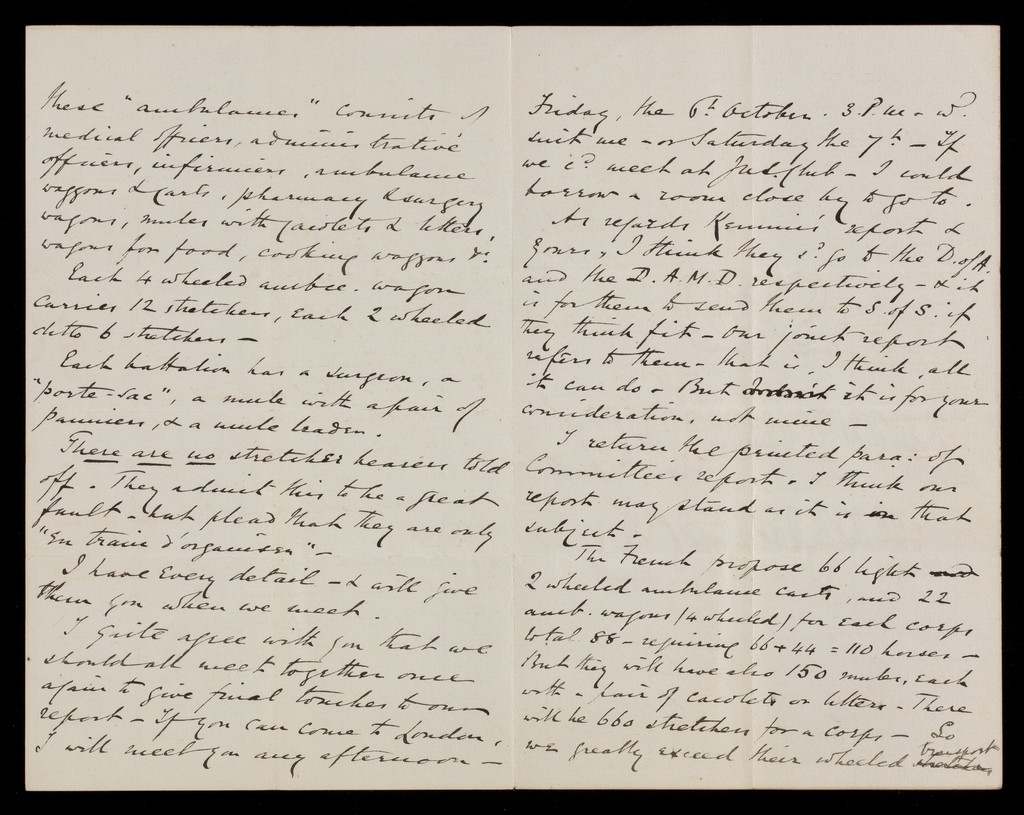 these "ambulances" consists of
medical officers, administrative
officers, infirmiers, ambulance
waggons & carts, pharmacy & surgery
wagons, mules with cacolets & litters,
wagons for food, cooking waggons &c.
Each 4 wheeled ambce. wagon
carries 12 stretchers, each 2 wheeled
ditto 6 stretchers —
Each battalion has a surgeon, a
"porte-sac", a mule with a pair of
panniers, & a mule leader.
There are no stretcher bearers told
off. They admit this to be a great
fault — but plead that they are only
"en train d'organiser" —
I have every detail — & will give
them you when we meet.
I quite agree with you that we
should all meet together once
again to give final touches to our
report — If you can come to London,
I will meet you any afternoon —
Friday, the 6th October. 3 P.m. — wd.
suit me — or Saturday the 7th — If
we cd. meet at Club — I could
borrow a room close by to go to.
As regards report &
yours, I think they sd. go to the D. of A.
and the D.A.M.D. respectively — & it
is for them to send them to S. of S. if
they think fit — Our joint report
refers to them — that is, I think, all
it can do — But it is for your
consideration, not mine —
I return the printed para: of
Committee's report. I think our
report may stand as it is on that
subject.
The French propose 66 light and
2 wheeled ambulance carts, and 22
amb. wagons (4 wheeled) for each corps
total 88 — requiring 66 + 44 = 110 horses —
But they will have also 150 mules, each
with a pair of cacolets or litters — There
will be 660 stretchers for a corps — So
we greatly exceed their wheeled transport